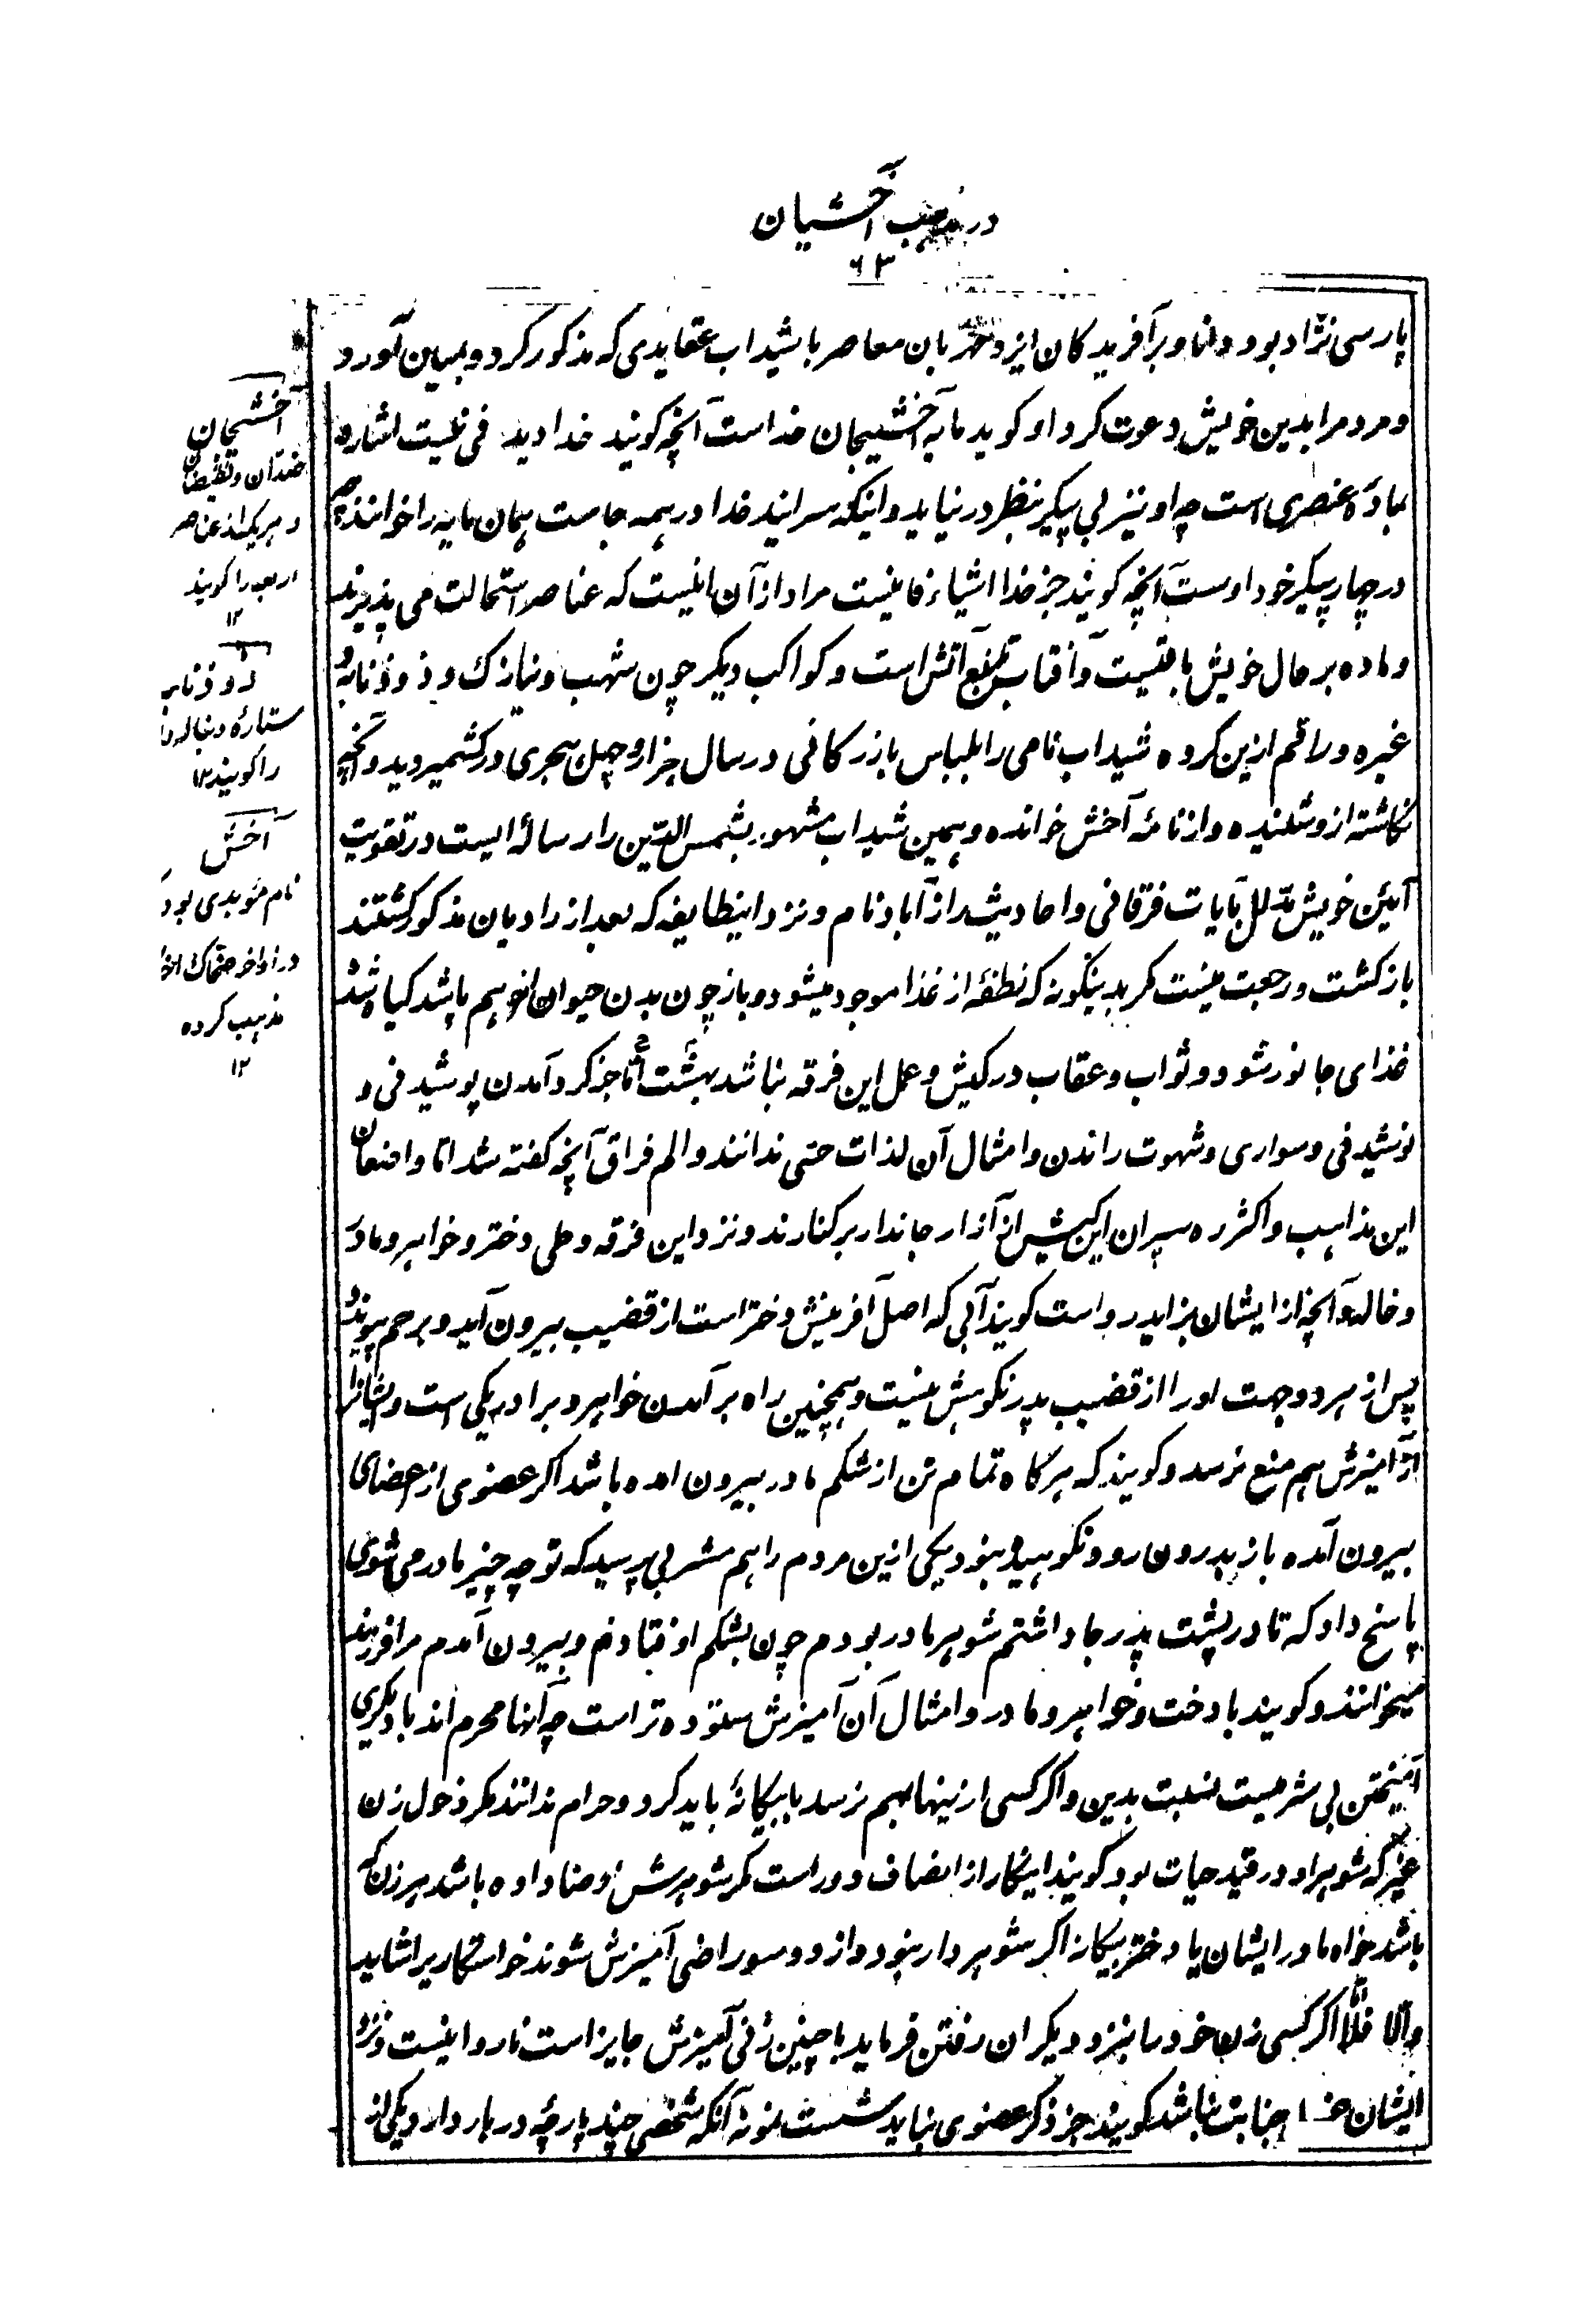 در مذهب آخشیان
۶۳
پارسی نژاد بود و دانا و بر آفریدکان ایزد مهربان معاصر با شیداب عقایدی که مذکور کردد و بمیان آورد
و مردم را بدین خویش دعوت کرد او کوید مایه آخشیجان خداست آنچه کویند خدا دیدنی نیست اشاره
بماده عنصری است چه او نیز بی پیکر بنظر در نیاید و اینکه سرایند خدا در همه جاست همان مایه را خوانند چه
در چهار پیکر خود اوست آنچه کویند جز خدا اشیاء فانیست مراد از آن اینست که عناصر استحالت می پذیرند
و ماده بر حال خویش باقیست و آفتاب منبع آتش است و کواکب دیکر چون شهب و نیازک و ذو ذنابه و
غیره و راقم ازین کروه شیداب نامی را بلباس بازرکانی در سال هزار و چهل هجری در کشمیر دید و آنچه
نکاشته ازو شنیده و از نامه آخش خوانده و همین شیداب مشهور بشمس الدین را رساله ایست در تقویت
آئین خویش مدلل بآیات فرقانی و احادیث از آباد نام و نزد اینطایفه که بعد از رادیان مذکور کشتند
بازکشت و رجعت نیست مکر بدینکونه که نطفه از غذا موجود میشود و باز چون بدن حیوان از هم پاشد کیاه شده
غذای جانور شود و ثواب و عقاب در کیش و عمل این فرقه نباشد بهشت را جز کرد آمدن پوشیدنی و
نوشیدنی و سواری و شهوت راندن و امثال آن لذات حسی ندانند و الم فراق آنچه کفته شد اما واضعان
این مذاهب و اکثر ره سپران این کیش از آزار جاندار برکنارند و نزد این فرقه وطی دختر و خواهر و مادر
و خاله و آنچه از ایشان بزاید رواست کویند آبی که اصل آفرینش دختر است از قضیب بیرون آید و برحم پیوندد
پس از هر دو جهت او را از قضیب پدر نکوهش نیست و همچنین راه برآمدن خواهر و برادر یکی است و ایشانرا
از آمیزش هم منع نرسد و کویند که هرکاه تمام تن از شکم مادر بیرون امده باشد اکر عضوی از اعضای
بیرون آمده باز بدرون رود نکوهیده نبود یکی ازین مردم را هم مشربی پرسید که تو چه چیز مادر می شوی
پاسخ داد که تا در پشت پدر جا داشتم شوهر مادر بودم چون بشکم او فتادم و بیرون آمدم مرا فرزند
میخوانند و کویند با دخت و خواهر و مادر و امثال آن آمیزش ستوده تر است چه آنها محرم اند با دیکری
آمیختن بی شرمیست نسبت بدین و اکر کسی ازینها بهم نرسد با بیکانه باید کرد و حرام ندانند مکر دخول زن
غیر که شوهر او در قید حیات بود کویند اینکار از انصاف دور است مکر شوهرش رضا داده باشد هر زن که
باشد خواه مادر ایشان یا دختر بیکانه اکر شوهر دار نبود و از دو سو راضی آمیزش شوند خواستکار را شاید
و الا فلا اما اکر کسی زن خود را بنزد دیکران رفتن فرماید با چنین زنی آمیزش جایز است ناروا نیست و نزد
ایشان جنابت نباشد کویند جز ذکر عضوی نباید شست نمونه آنکه شخصی چند پارچه در بار دارد یکی از
آخشیجان
ضدان و نقیضان
و هر یک از عناصر
اربعه را کویند
۱۲
ذو ذنابه
ستاره دنباله دار
را کویند ۱۲
آخش
نام موبدی بود
در اواخر ضحاک
مذهب کرده
۱۲